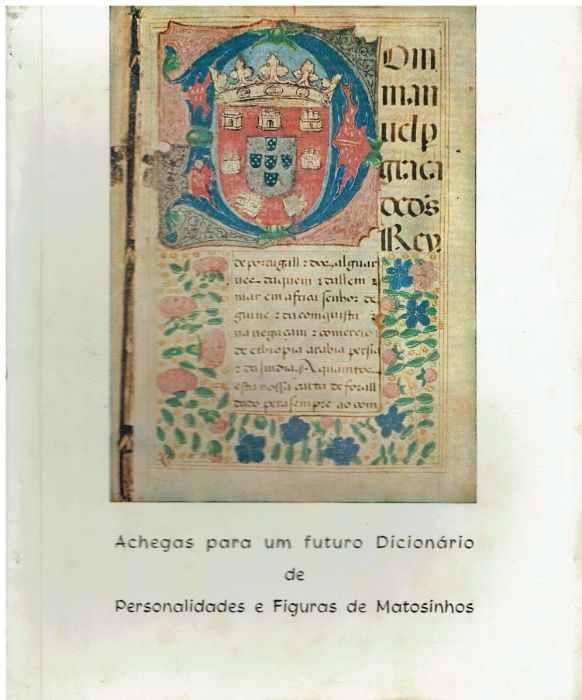 Dom
man
uel p
graça
d'eos
Rey
de portugall ⁊ dos alguar
ues daquem ⁊ dallem
mar em africa senhor de
guine ⁊ da conquista ⁊
na negaçam ⁊ comercio
de ethiopia arabia persia
⁊ da India. A quantos
esta nossa carta de forall
dado pera sempre ao com
Achegas para um futuro Dicionário
de
Personalidades e Figuras de Matosinhos